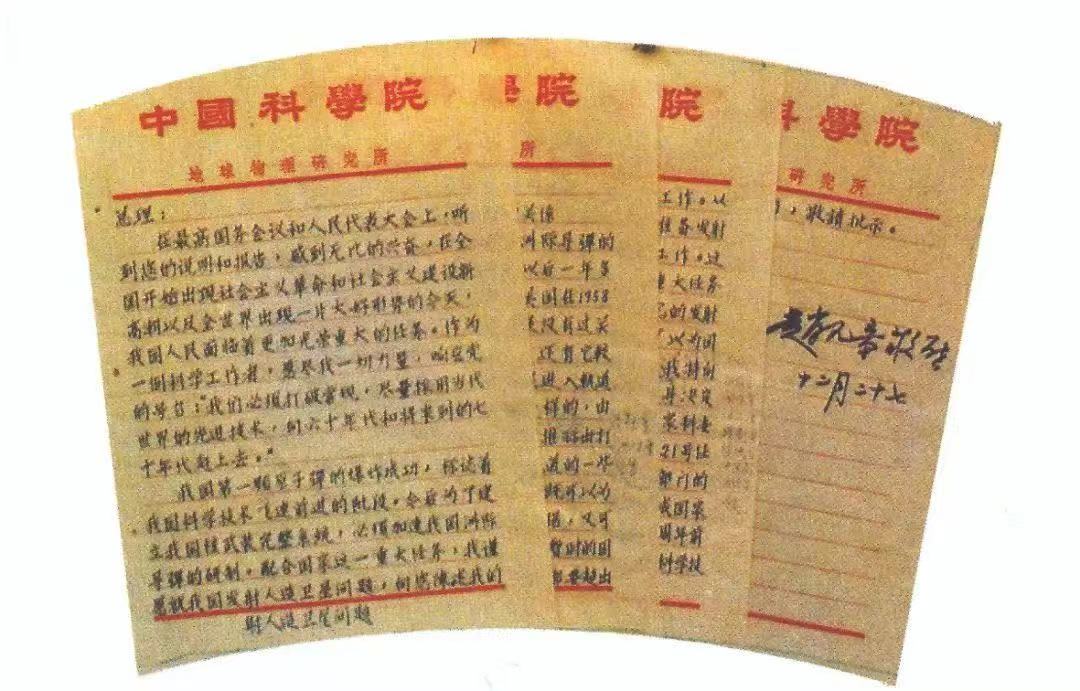 中國科學院
地球物理研究所
总理：
在最高国务会议和人民代表大会上，听
到您的说明和报告，感到无比的兴奋，在全
国开始出现社会主义革命和社会主义建设新
高潮以及全世界出现一片大好形势的今天，
我国人民面临着更加光荣重大的任务。作为
一個科学工作者，愿尽我一切力量，响应党
的号召：“我们必须打破常规，尽量採用当代
世界的先进技术，向六十年代和将来到的七
十年代赶上去。”
我国第一颗原子弹的爆炸成功，标志着
我国科学技术飞速前进的阶段，今后为了建
立我国核武装完整系统，必须加速我国洲际
导弹的研制，配合国家这一重大任务，我谨
愿就我国发射人造卫星问题，向您陈述我的
射人造卫星问题
院
所
洲际导弹的
以后一年多
国在1958
没有过关
还有它较
进入轨道
样的，由
推标出打
道的一半
既可以为
，又可
暂时的国
要超出
院
工作。以
准备发射
工作。过
重大任务
的发射
以为国
我特向
导决定
家科委
21号Ⅰ
部门的
我国家
周年前
科学技
學院
研究所
，敬请批示。
赵九章敬礼
十二月二十七